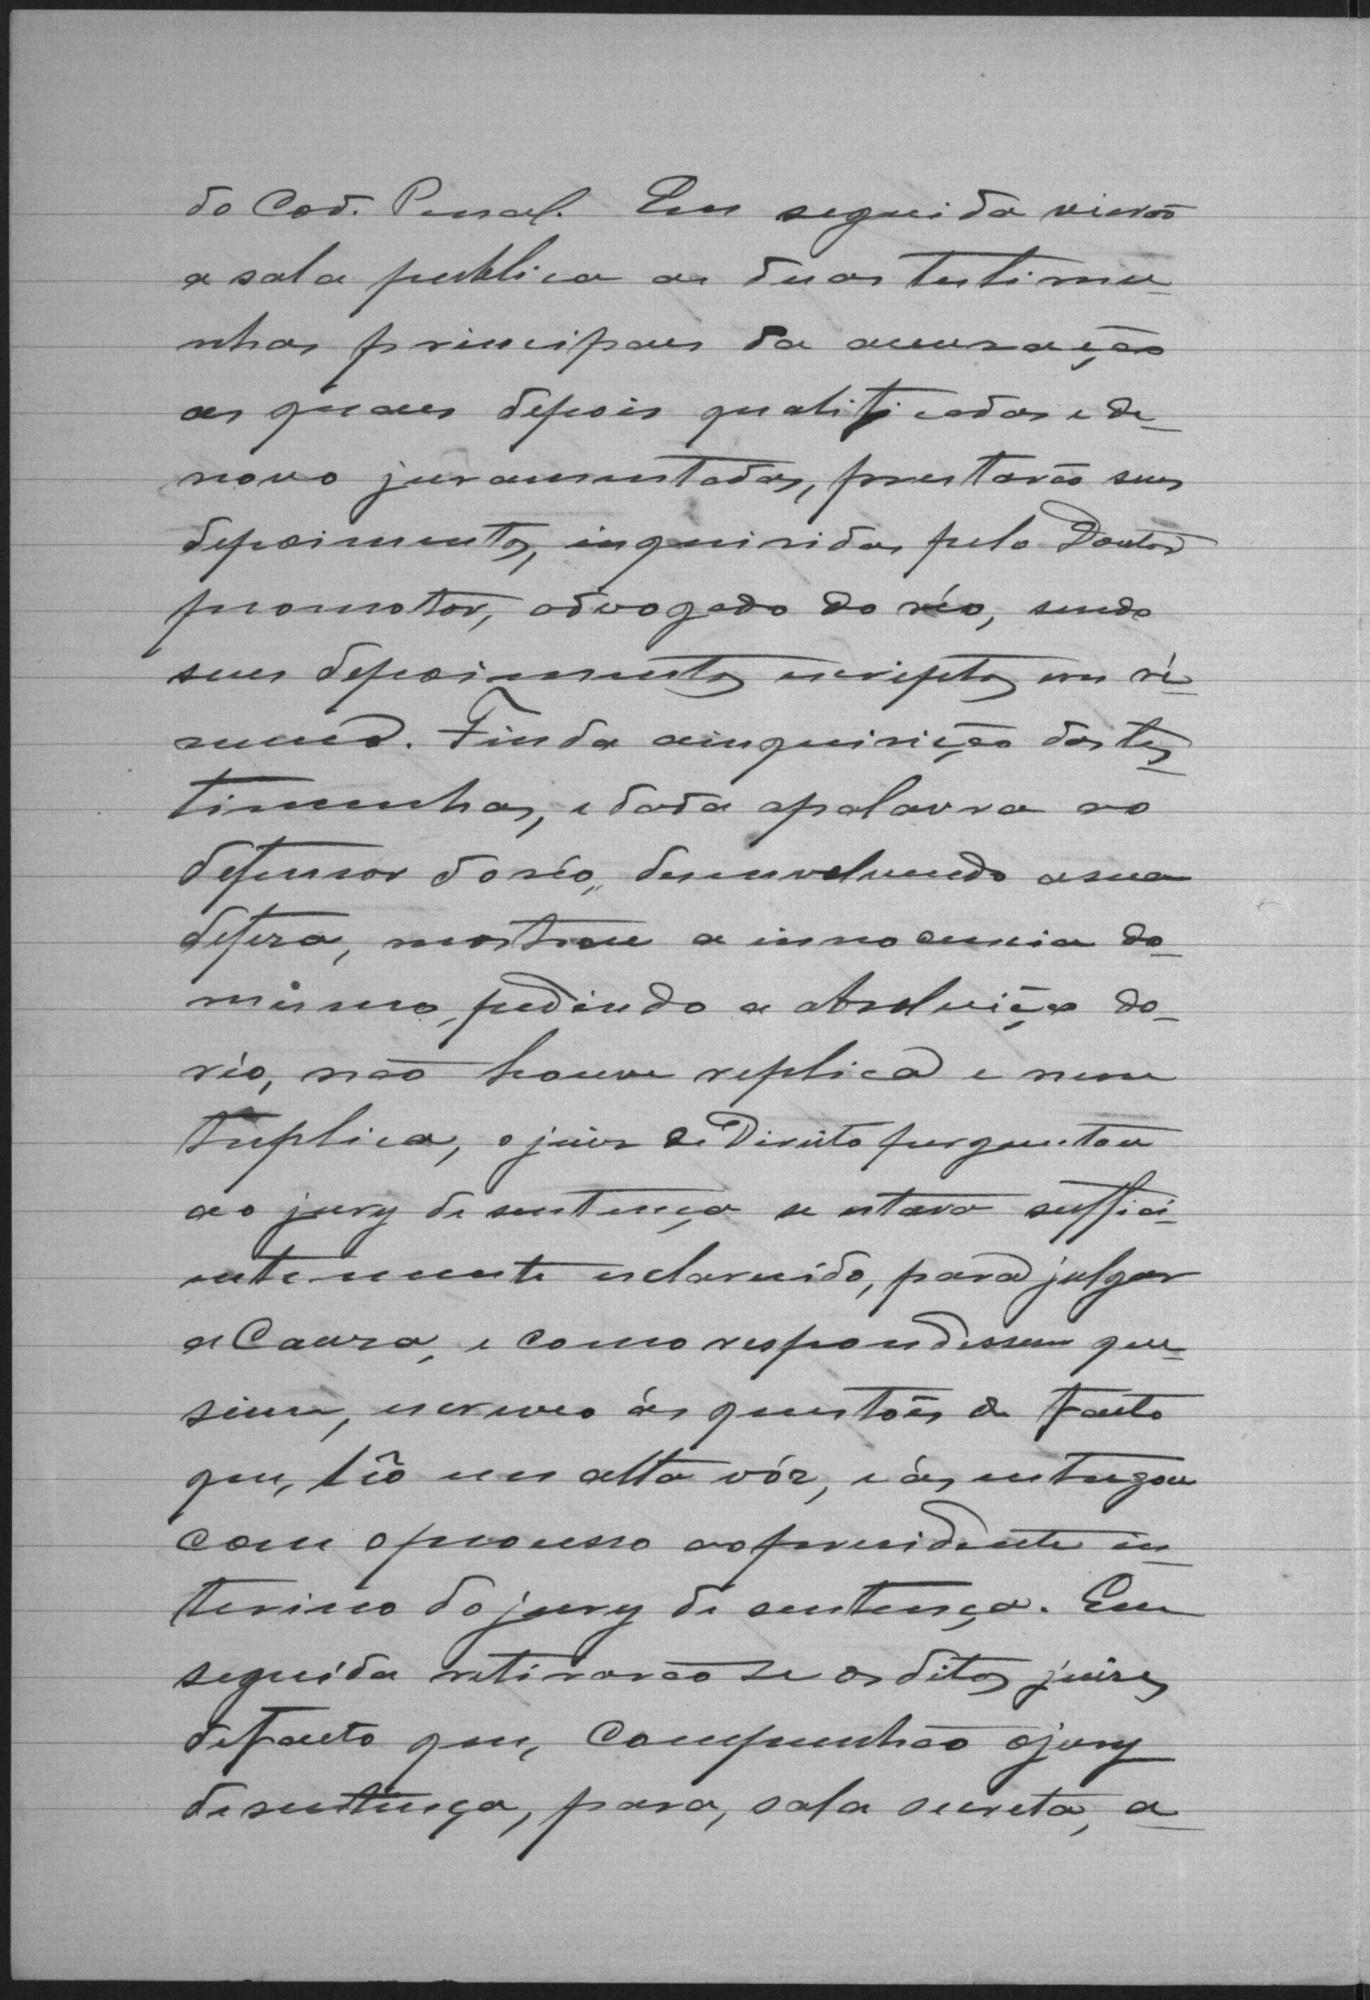 do Cod. Penal. Em seguida vierão
a sala publica as duas testimu-
nhas principaes da accusação
as quaes depois qualificadas e de-
novo juramentadas, prestarão seus
depoimentos, inquiridas pelo Doutor
promotor, advogado do réo, sendo
seus depoimentos escriptos em re-
sumo. Finda ainquirição das tes-
timunhas, e dada apalavra ao
defensor do réo, desenvolvendo asua
defeza, mostrou a innocencia do-
mesmo, pedindo a absolvição do-
réo, não houve replica e nem
treplica, o juiz de Direito perguntou
ao jury de sentença se estava suffici-
entemente esclarecido, para julgar
a Causa, e como respondessem que-
sim, escreveo ás questões de facto
que, lêo em alta vóz, e ás entregou
com o processo ao presidente in-
terino do jury de sentença. Em
seguida retirarão se os ditos juizes
defacto que, compunhão ojury
desentença, para, sala secreta, a-